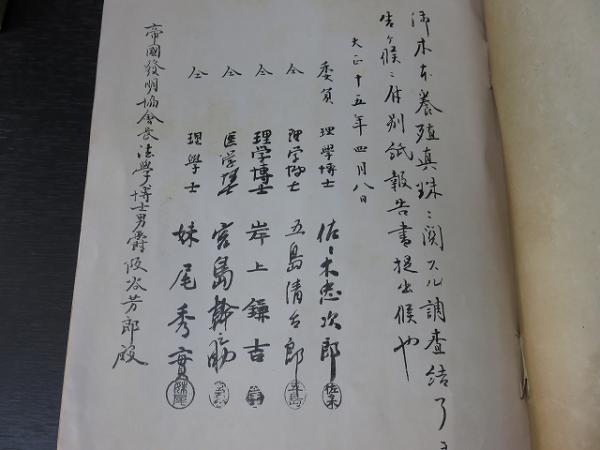 御木本養殖真珠ニ関スル調査結了
候ニ付別紙報告書提出候也
大正十五年四月八日
委員 理學博士 佐々木忠次郎
仝 理学博士 五島清太郎
仝 理学博士 岸上鎌吉
仝 医学博士 宮島幹之助
仝 理學士 妹尾秀實
帝國發明協會長法學博士男爵阪谷芳郎殿